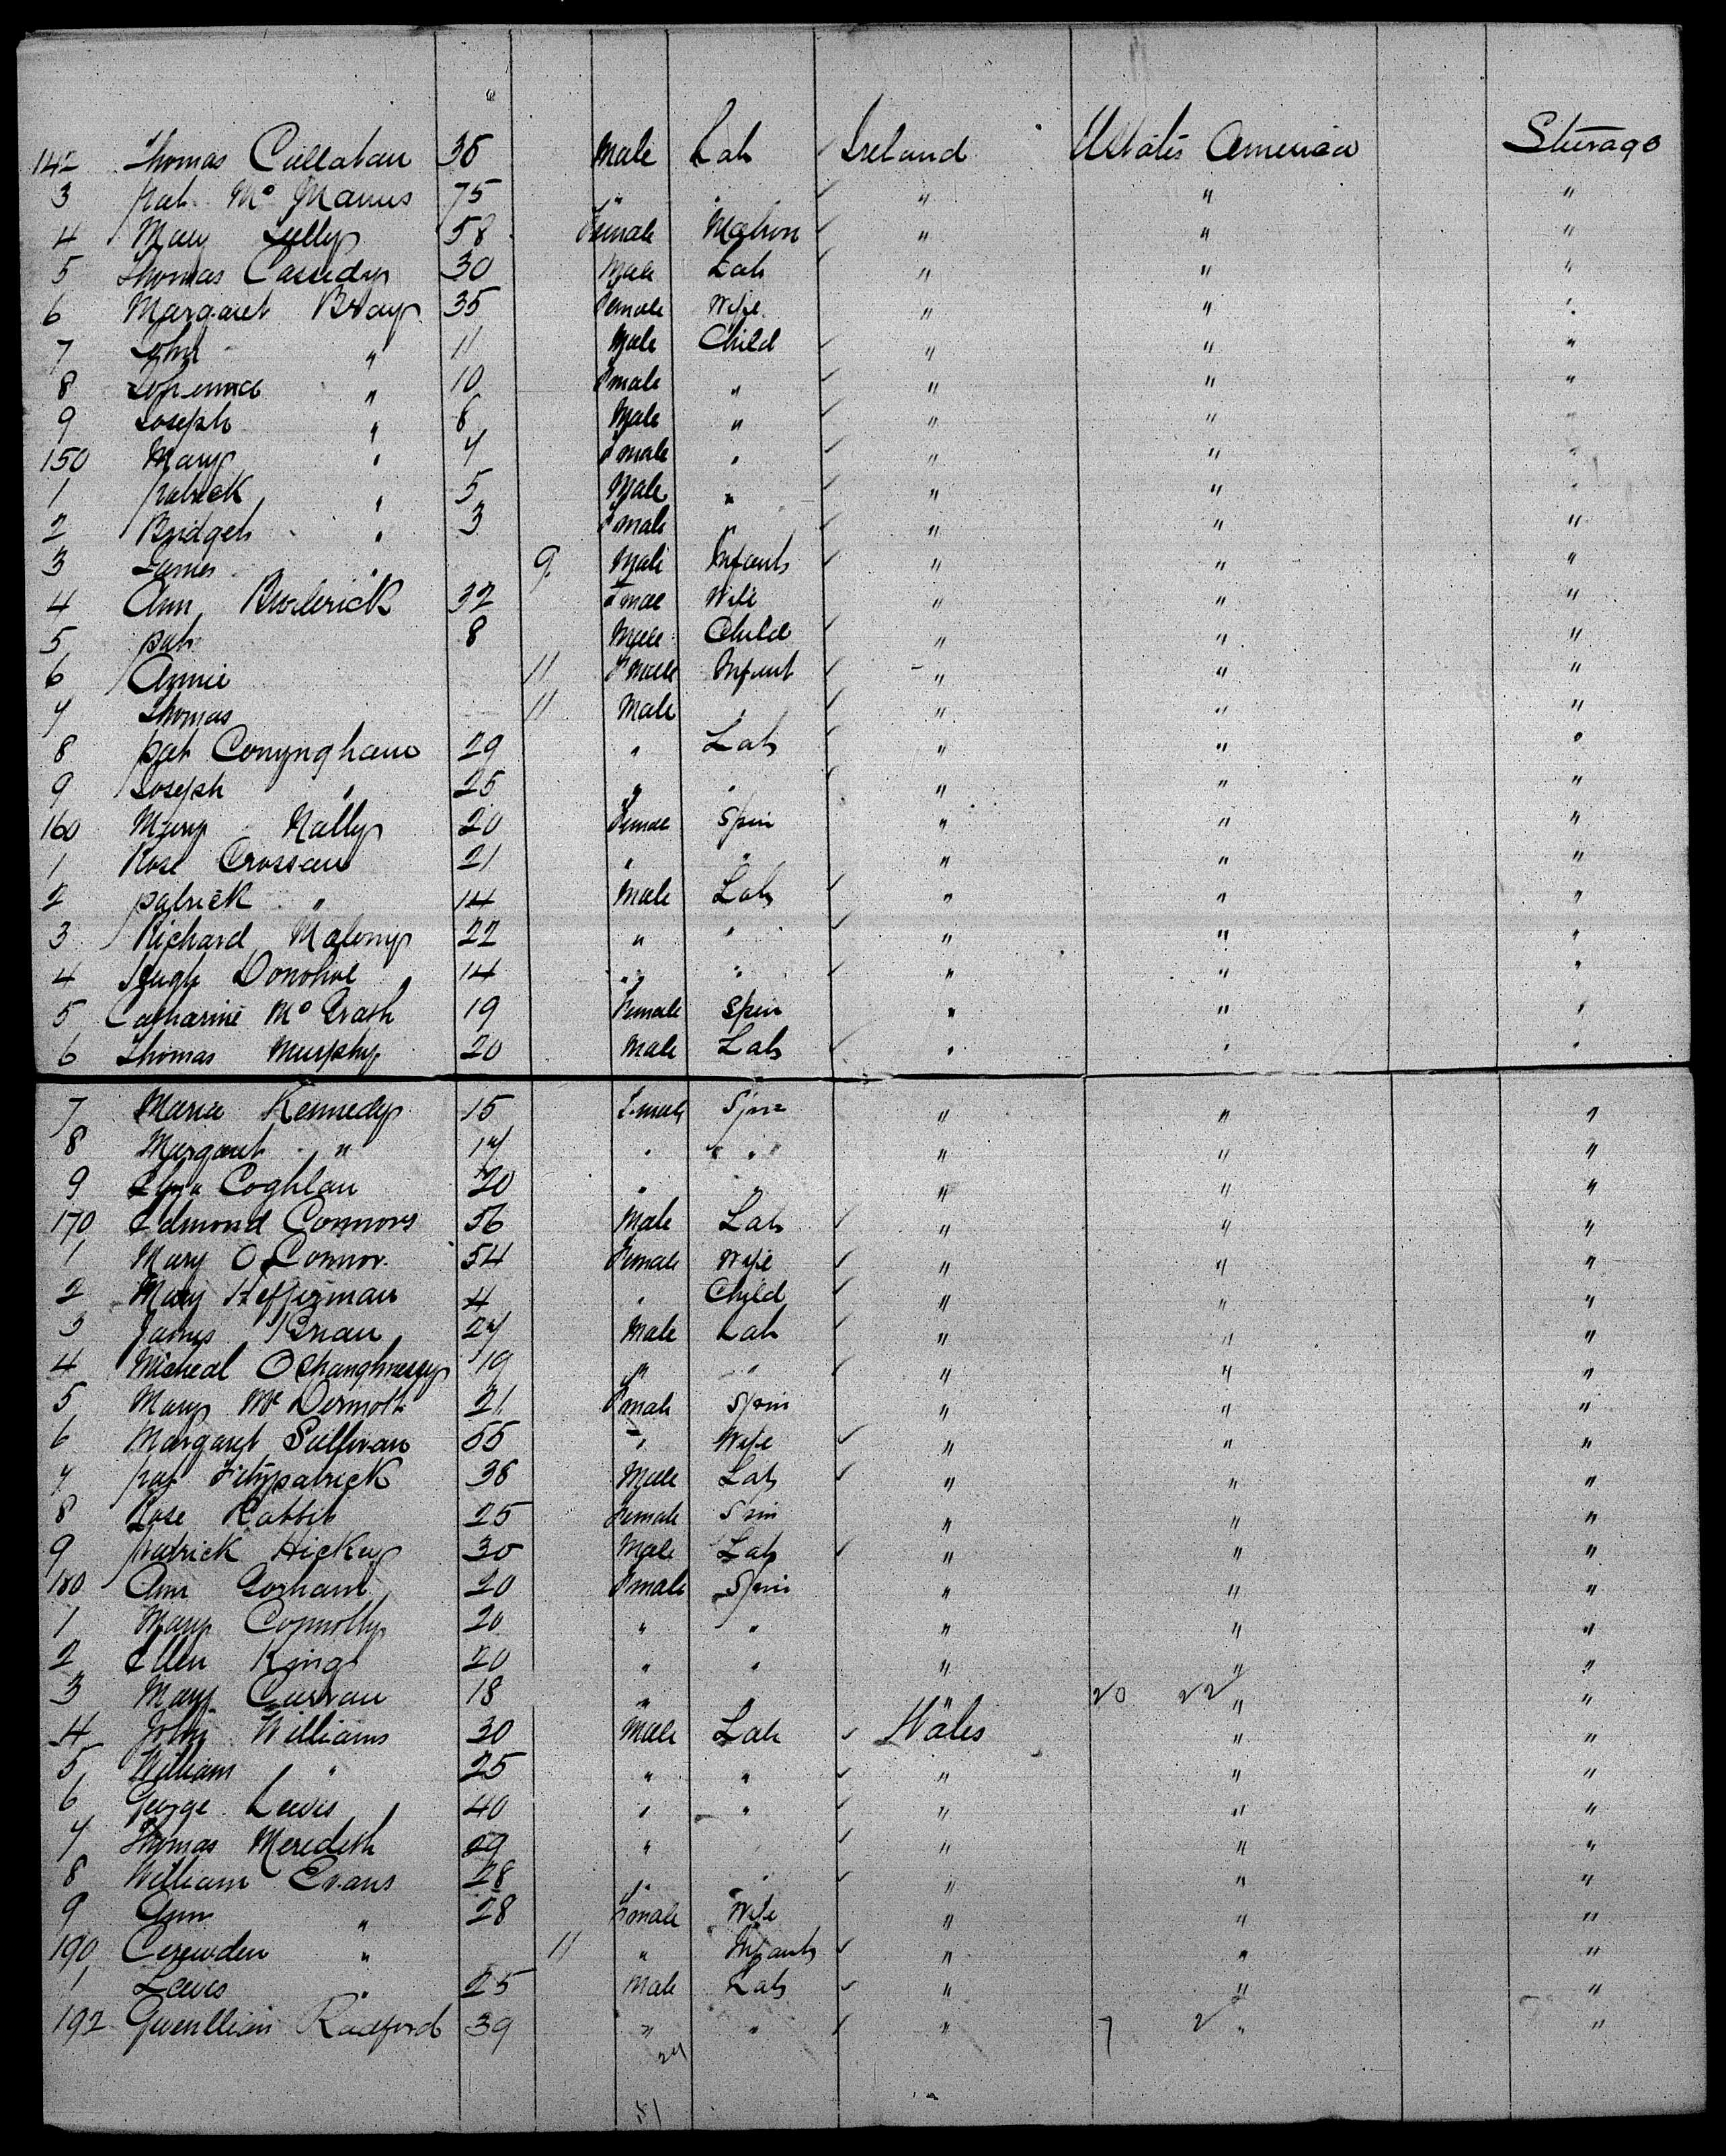 142 Thomas Callahan 35 Male Lab Ireland UStates America Steerage
3 pat Mc Manus 75 " " " " "
4 Mary Lully 58 Female Matron " " "
5 Thomas Cassedy 30 Male Lab " " "
6 Margaret Bray 35 Female Wife " " "
7 John " 11 Male Child " " "
8 " 10 Female " " " "
9 Joseph " 8 Male " " " "
150 Mary " 7 Female " " " "
1 patrick " 5 Male " " " "
2 Bridget " 3 Female " " " "
3 James " 9 Male Infant " " "
4 Ann Broderick 32 Female Wife " " "
5 pat 8 Male Child " " "
6 Annie 11 Female Infant " " "
7 Thomas 11 Male " " " "
8 pat Conyngham 29 " Lab " " "
9 Joseph " 25 " " " " "
160 Mary Nally 20 Female Spin " " "
1 Rose Crossan 21 " " " " "
2 patrick " 14 Male Lab " " "
3 Richard Malony 22 " " " " "
4 Hugh Donohoe 14 " " " " "
5 Catharine Mc Grath 19 Female Spin " " "
6 Thomas Murphy 20 Male Lab " " "
7 Maria Kennedy 15 Female Spin " " "
8 Margaret " 17 " " " " "
9 Eliza Coghlan 20 " " " " "
170 Edmond Connors 56 Male Lab " " "
1 Mary O Connor 54 Female Wife " " "
2 Mary Heffernan 4 " Child " " "
3 James Brian 27 Male Lab " " "
4 Micheal OShaughnessy 19 " " " " "
5 Mary Mc Dermott 21 Female Spin " " "
6 Margaret Sullivan 55 " Wife " " "
7 pat Fitzpatrick 38 Male Lab " " "
8 Rose Rabbit 25 Female Spin " " "
9 patrick Hickey 30 Male Lab " " "
180 Ann Gorham 20 Female Spin " " "
1 Mary Connolly 20 " " " " "
2 Ellen King 20 " " " " "
3 Mary Curran 18 " " " 20 22 " "
4 John Williams 30 Male Lab Wales " "
5 William " 25 " " " " "
6 George Lewis 40 " " " " "
7 Thomas Meredith 29 " " " "
8 William Evans 28 " " " " "
9 Ann " 28 Female Wife " " "
190 " 11 " Infant " " "
1 Lewis " 25 Male Lab " " "
192 Gwenllian Radford 39 " " " 7 2 " "